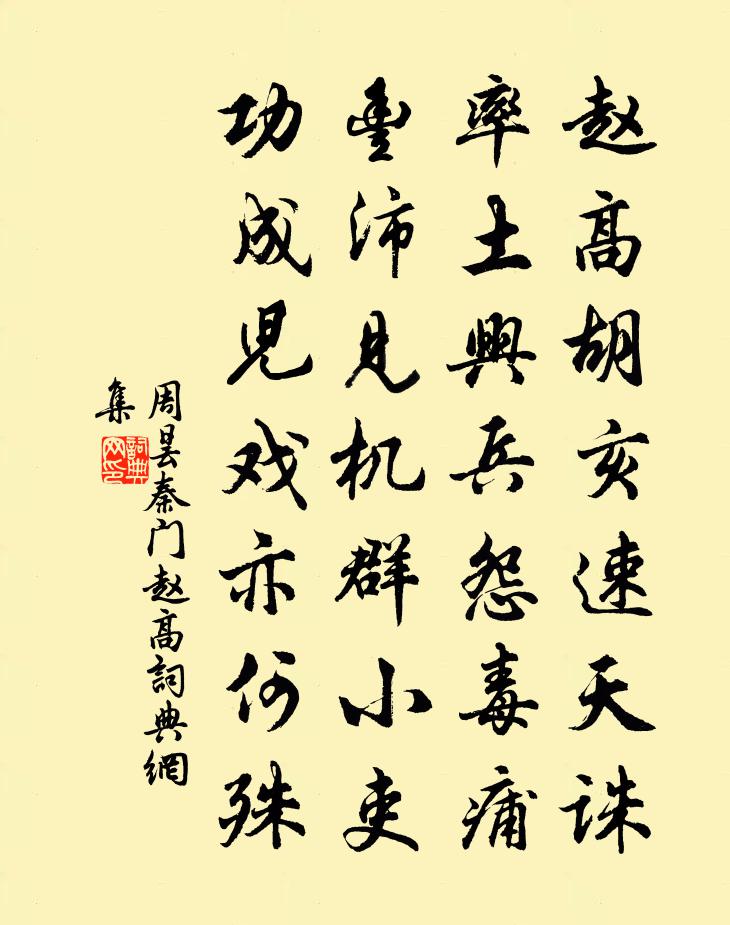 赵高胡亥速天诛
率土興兵怨毒痡
豊沛見机群小吏
功成児戏亦何殊
周昙秦门赵高詞典網
集
詞典网印